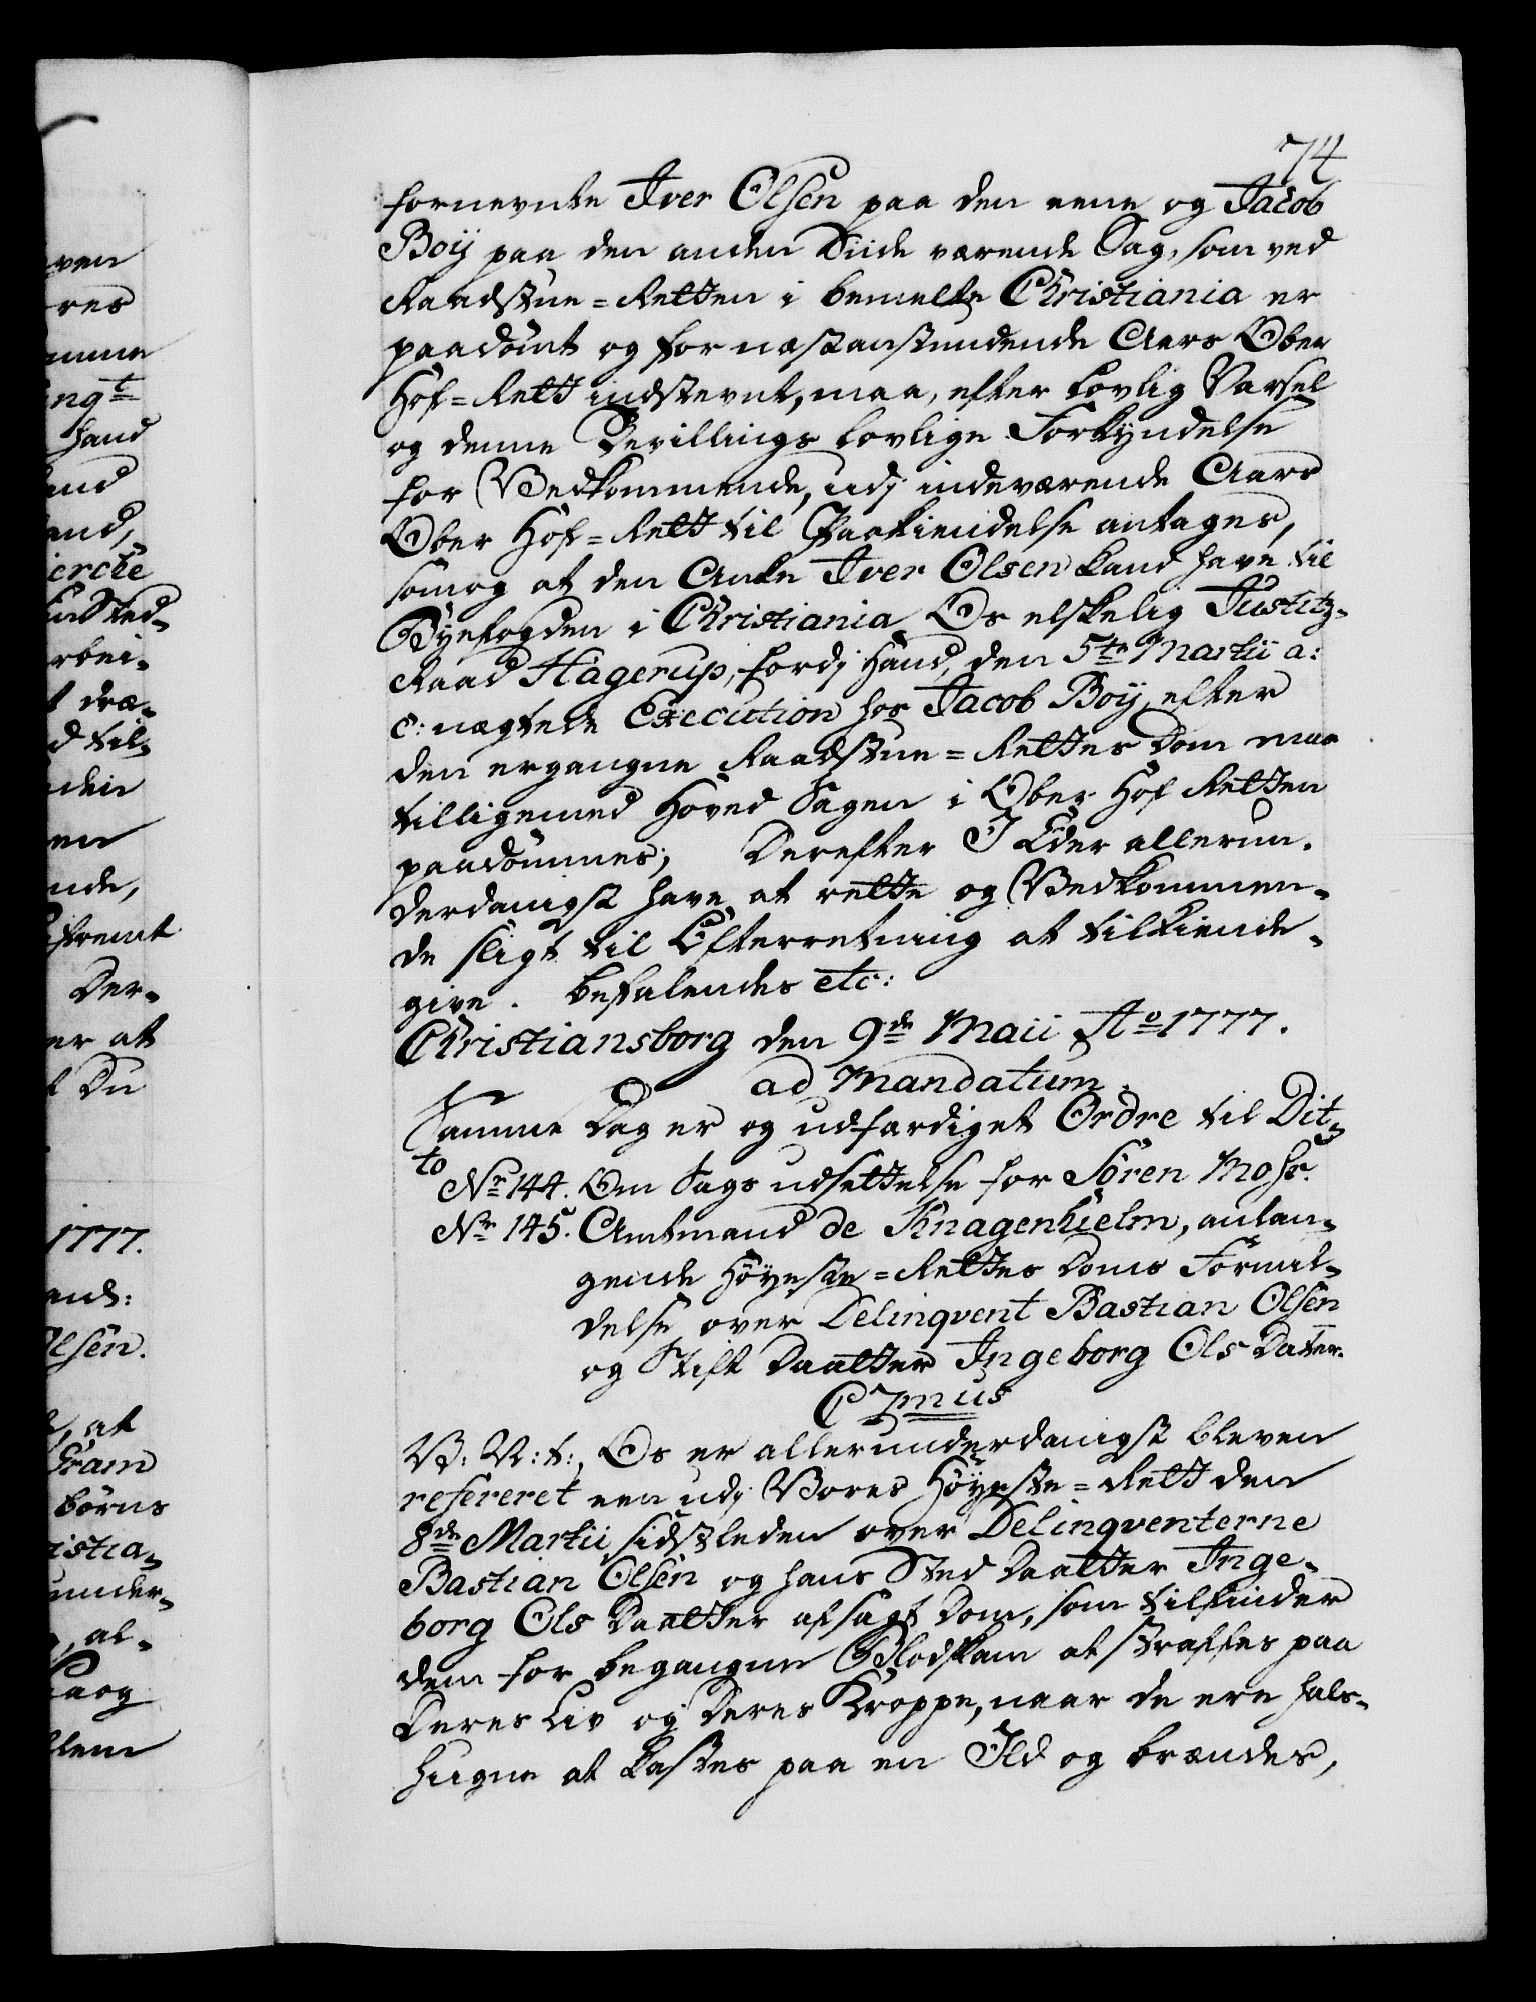 74
fornevnte Iver Olsen paa den eene og Jacob
Boij paa den anden Siide værende Sag, som ved
Raadstue=Retten i bemelte Christiania er
paadömt og for næstanstundende Aars Ober
Hof=Rett indstevnt, maa, efter lovlig Varsel
og denne Bevillings lovlige Forkyndelse
for Vedkommende, udj indeværende Aars
Ober Hof=Rett til Paakiendelse antages,
somog at den Anke Iver Olsen kand have til
Byefogden i Christiania Os elskelig Justitz-
Raad Hagerup, fordj hand, den 5te Martii a:
c: nægtede Execution hos Jacob Boij, efter
den ergangne Raadstue=Rettes Dom maa
tilligemed Hoved Sagen i Ober Hof Retten
paadömmes; Derefter I Eder allerun-
derdanigst have at rette og Vedkommen-
de sligt til Efterretning at tilkiende-
give. Befalendes etc:
Christiansborg den 9de Maii Ao 1777.
ad Mandatum.
Samme Dag er og udfærdiget Ordre til Dit-
to
Nr 144. Om Sags udsettelse for Sören Mohr.
Nr 145. Amtmand de Knagenhielm, anlan-
gende Höyeste=Rettes Doms Formil-
delse over Delinqvent Bastian Olsen
og Stift Daatter Ingeborg Ols Datter.
C 7mus
V. V: t:, Os er allerunderdanigst bleven
refereret een udj Vores Höyeste=Rett den
8de Martii sidstleden over Delinqventerne
Bastian Olsen og hans Sted Daatter Inge-
borg Ols Daatter afsagt Dom, som tilfinder
dem for begangne Blodskam at straffes paa
Deres Liv og Deres Kroppe, naar de ere hals-
hugne at kastes paa en Ild og brændes,